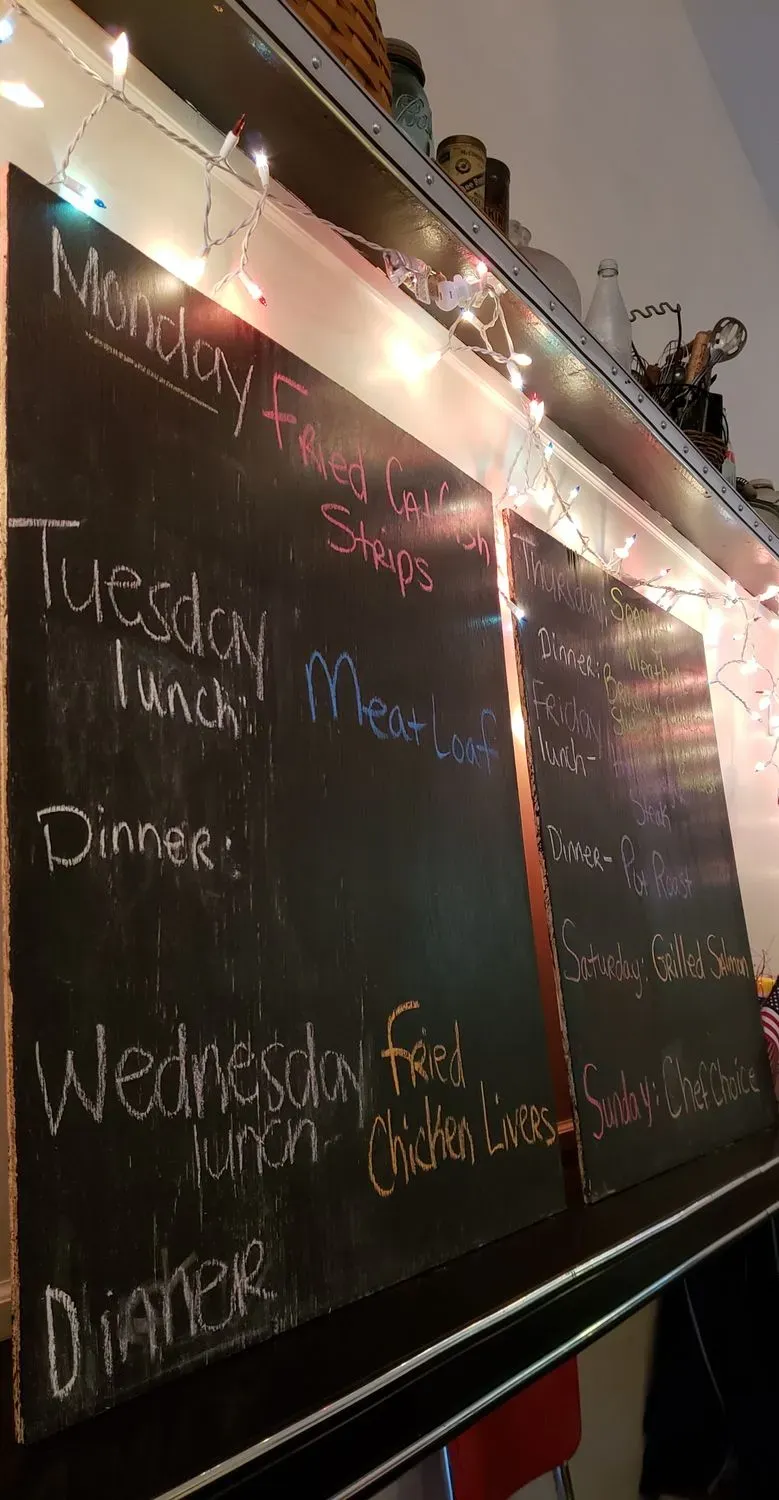 Monday
Fried Catfish
Strips
Tuesday
lunch:
Meatloaf
Dinner:
Wednesday
lunch-
Fried
Chicken Livers
Dinner
Thursday
Dinner:
Friday
lunch-
Steak
Dinner- Pot Roast
Saturday: Grilled Salmon
Sunday: Chef Choice